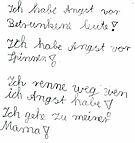 Ich habe Angst vor
Betrunkene leute!
Ich habe Angst vor
Spinnen!
Ich renne weg wen
ich Angst habe!
Ich gehe zu meiner
Mama!